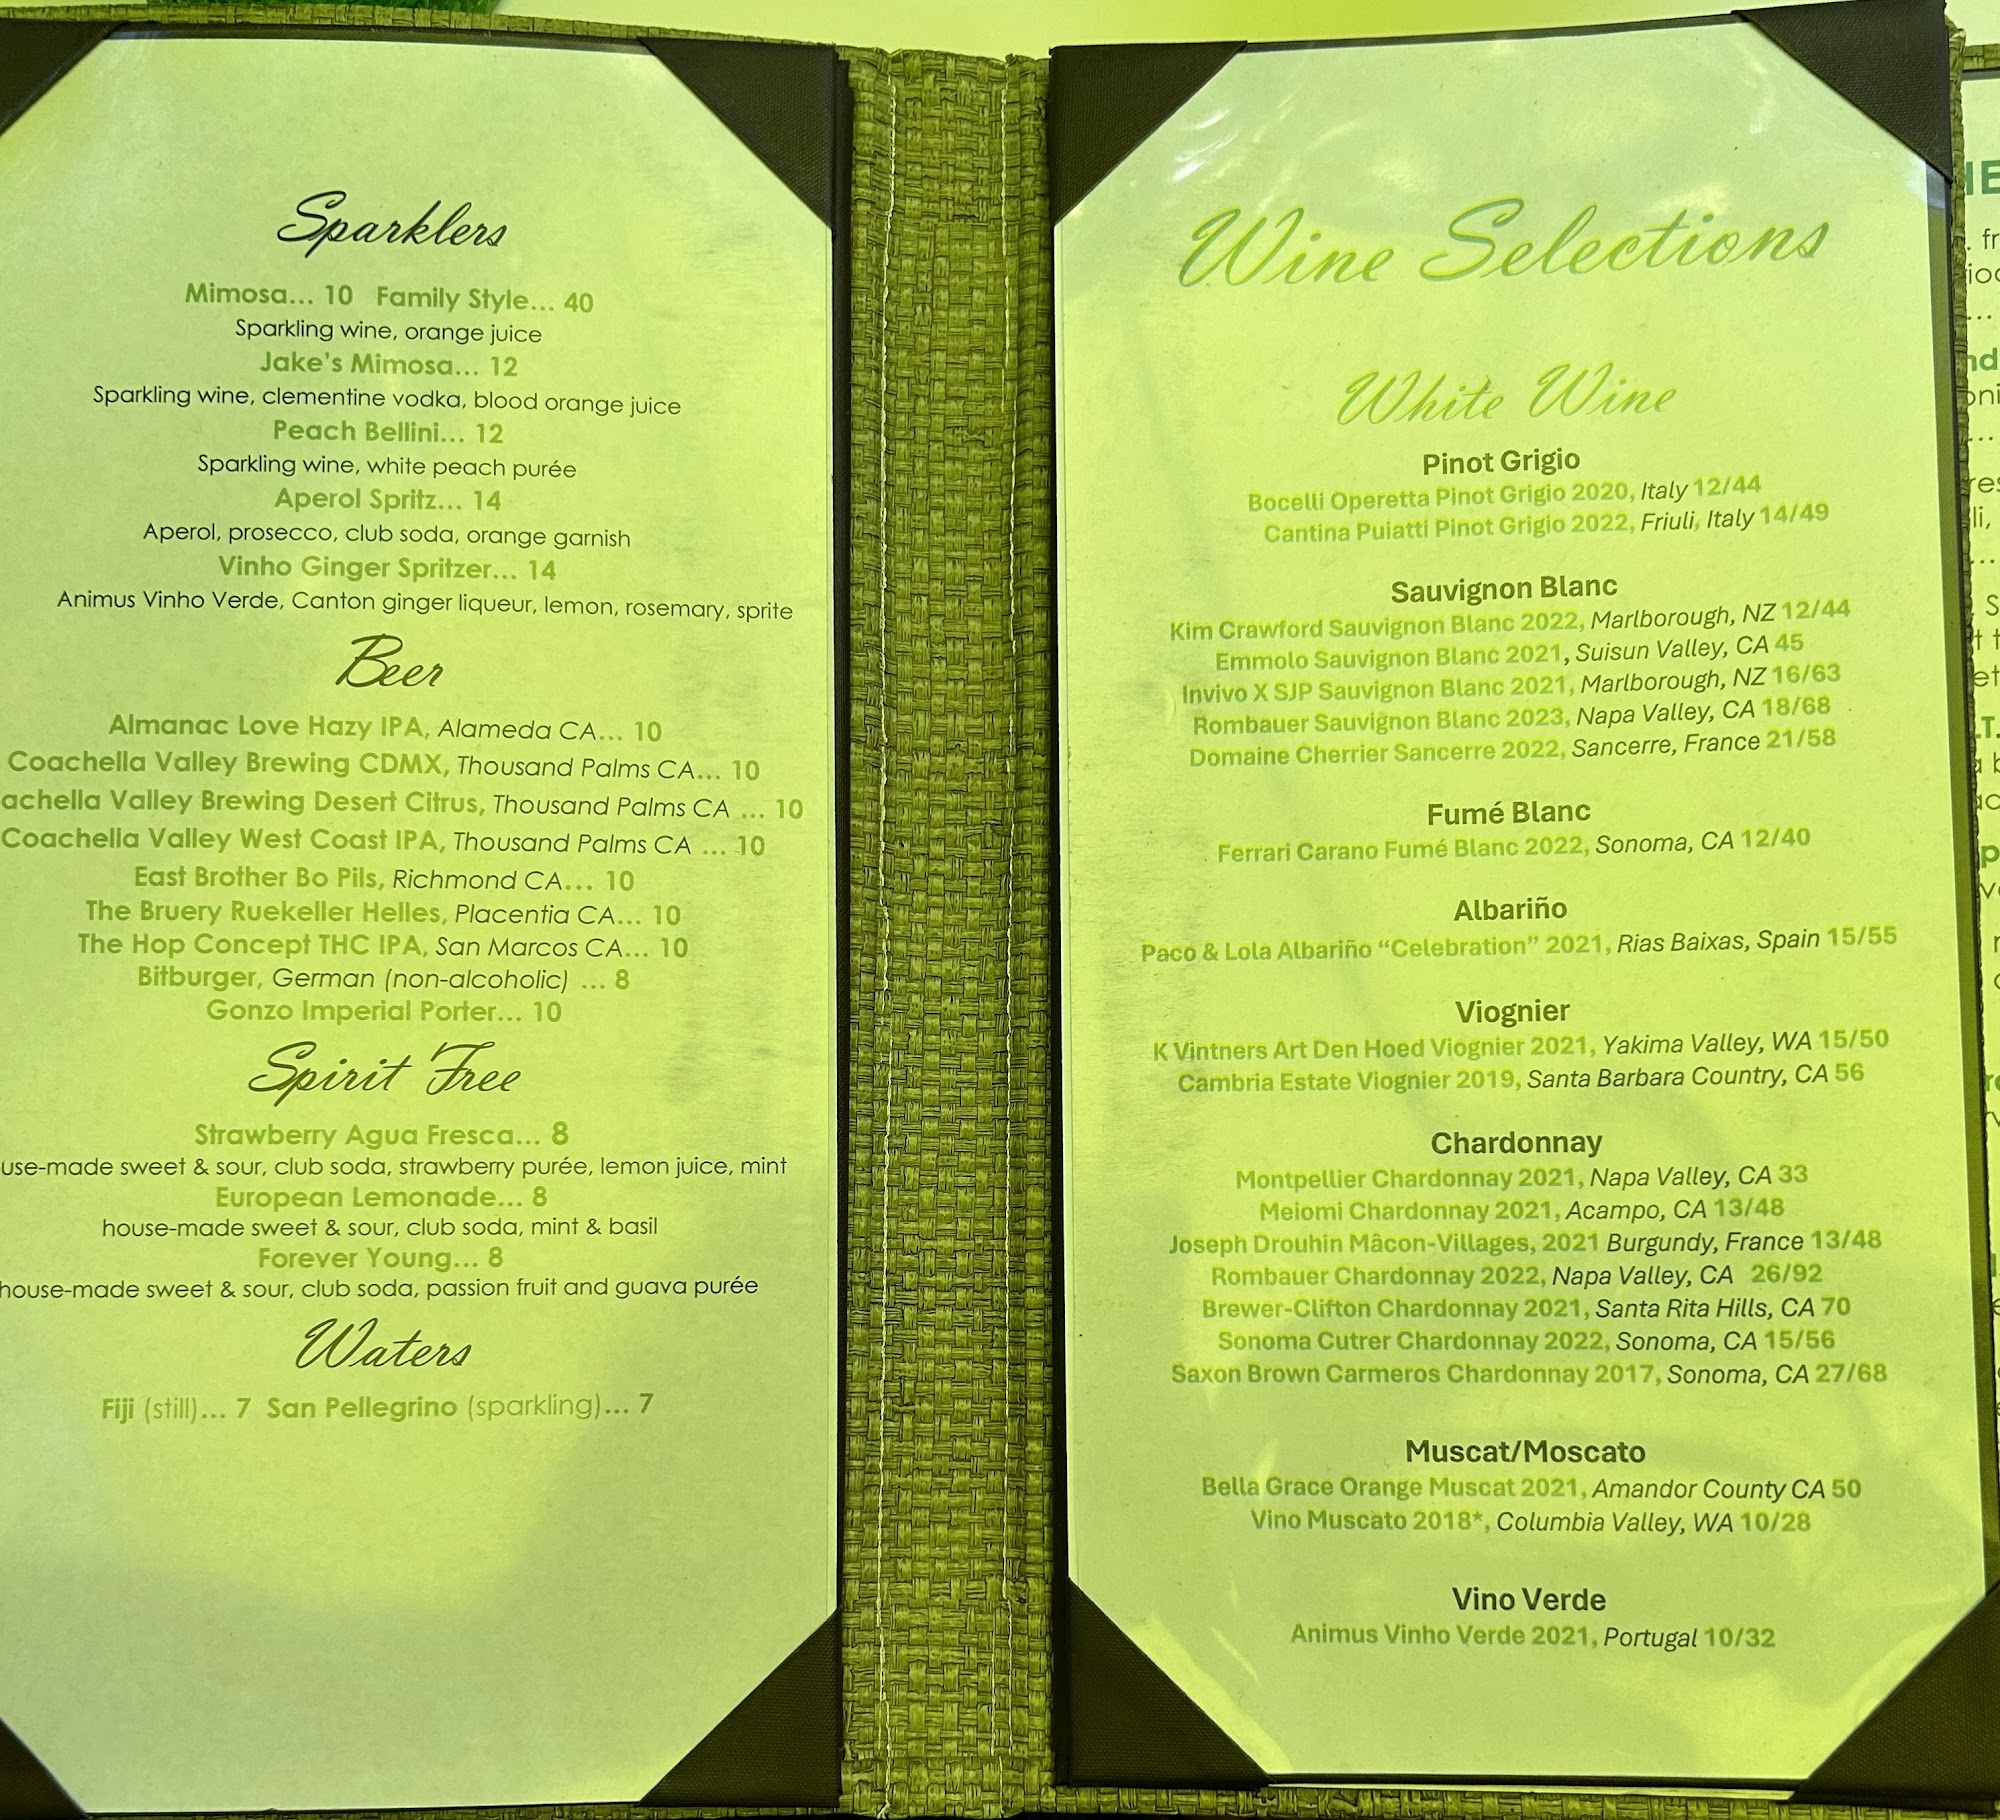 Sparklers
Mimosa... 10 Family Style... 40
Sparkling wine, orange juice
Jake's Mimosa... 12
Sparkling wine, clementine vodka, blood orange juice
Peach Bellini... 12
Sparkling wine, white peach purée
Aperol Spritz... 14
Aperol, prosecco, club soda, orange garnish
Vinho Ginger Spritzer... 14
Animus Vinho Verde, Canton ginger liqueur, lemon, rosemary, sprite
Beer
Almanac Love Hazy IPA, Alameda CA... 10
Coachella Valley Brewing CDMX, Thousand Palms CA... 10
achella Valley Brewing Desert Citrus, Thousand Palms CA ... 10
Coachella Valley West Coast IPA, Thousand Palms CA ... 10
East Brother Bo Pils, Richmond CA... 10
The Bruery Ruekeller Helles, Placentia CA... 10
The Hop Concept THC IPA, San Marcos CA... 10
Bitburger, German (non-alcoholic) ... 8
Gonzo Imperial Porter... 10
Spirit Free
Strawberry Agua Fresca... 8
use-made sweet & sour, club soda, strawberry purée, lemon juice, mint
European Lemonade... 8
house-made sweet & sour, club soda, mint & basil
Forever Young... 8
house-made sweet & sour, club soda, passion fruit and guava purée
Waters
Fiji (still)... 7 San Pellegrino (sparkling)... 7
Wine Selections
White Wine
Pinot Grigio
Bocelli Operetta Pinot Grigio 2020, Italy 12/44
Cantina Puiatti Pinot Grigio 2022, Friuli, Italy 14/49
Sauvignon Blanc
Kim Crawford Sauvignon Blanc 2022, Marlborough, NZ 12/44
Emmolo Sauvignon Blanc 2021, Suisun Valley, CA 45
Invivo X SJP Sauvignon Blanc 2021, Marlborough, NZ 16/63
Rombauer Sauvignon Blanc 2023, Napa Valley, CA 18/68
Domaine Cherrier Sancerre 2022, Sancerre, France 21/58
Fumé Blanc
Ferrari Carano Fumé Blanc 2022, Sonoma, CA 12/40
Albariño
Paco & Lola Albariño “Celebration” 2021, Rias Baixas, Spain 15/55
Viognier
K Vintners Art Den Hoed Viognier 2021, Yakima Valley, WA 15/50
Cambria Estate Viognier 2019, Santa Barbara Country, CA 56
Chardonnay
Montpellier Chardonnay 2021, Napa Valley, CA 33
Meiomi Chardonnay 2021, Acampo, CA 13/48
Joseph Drouhin Mâcon-Villages, 2021 Burgundy, France 13/48
Rombauer Chardonnay 2022, Napa Valley, CA 26/92
Brewer-Clifton Chardonnay 2021, Santa Rita Hills, CA 70
Sonoma Cutrer Chardonnay 2022, Sonoma, CA 15/56
Saxon Brown Carmeros Chardonnay 2017, Sonoma, CA 27/68
Muscat/Moscato
Bella Grace Orange Muscat 2021, Amandor County CA 50
Vino Muscato 2018*, Columbia Valley, WA 10/28
Vino Verde
Animus Vinho Verde 2021, Portugal 10/32